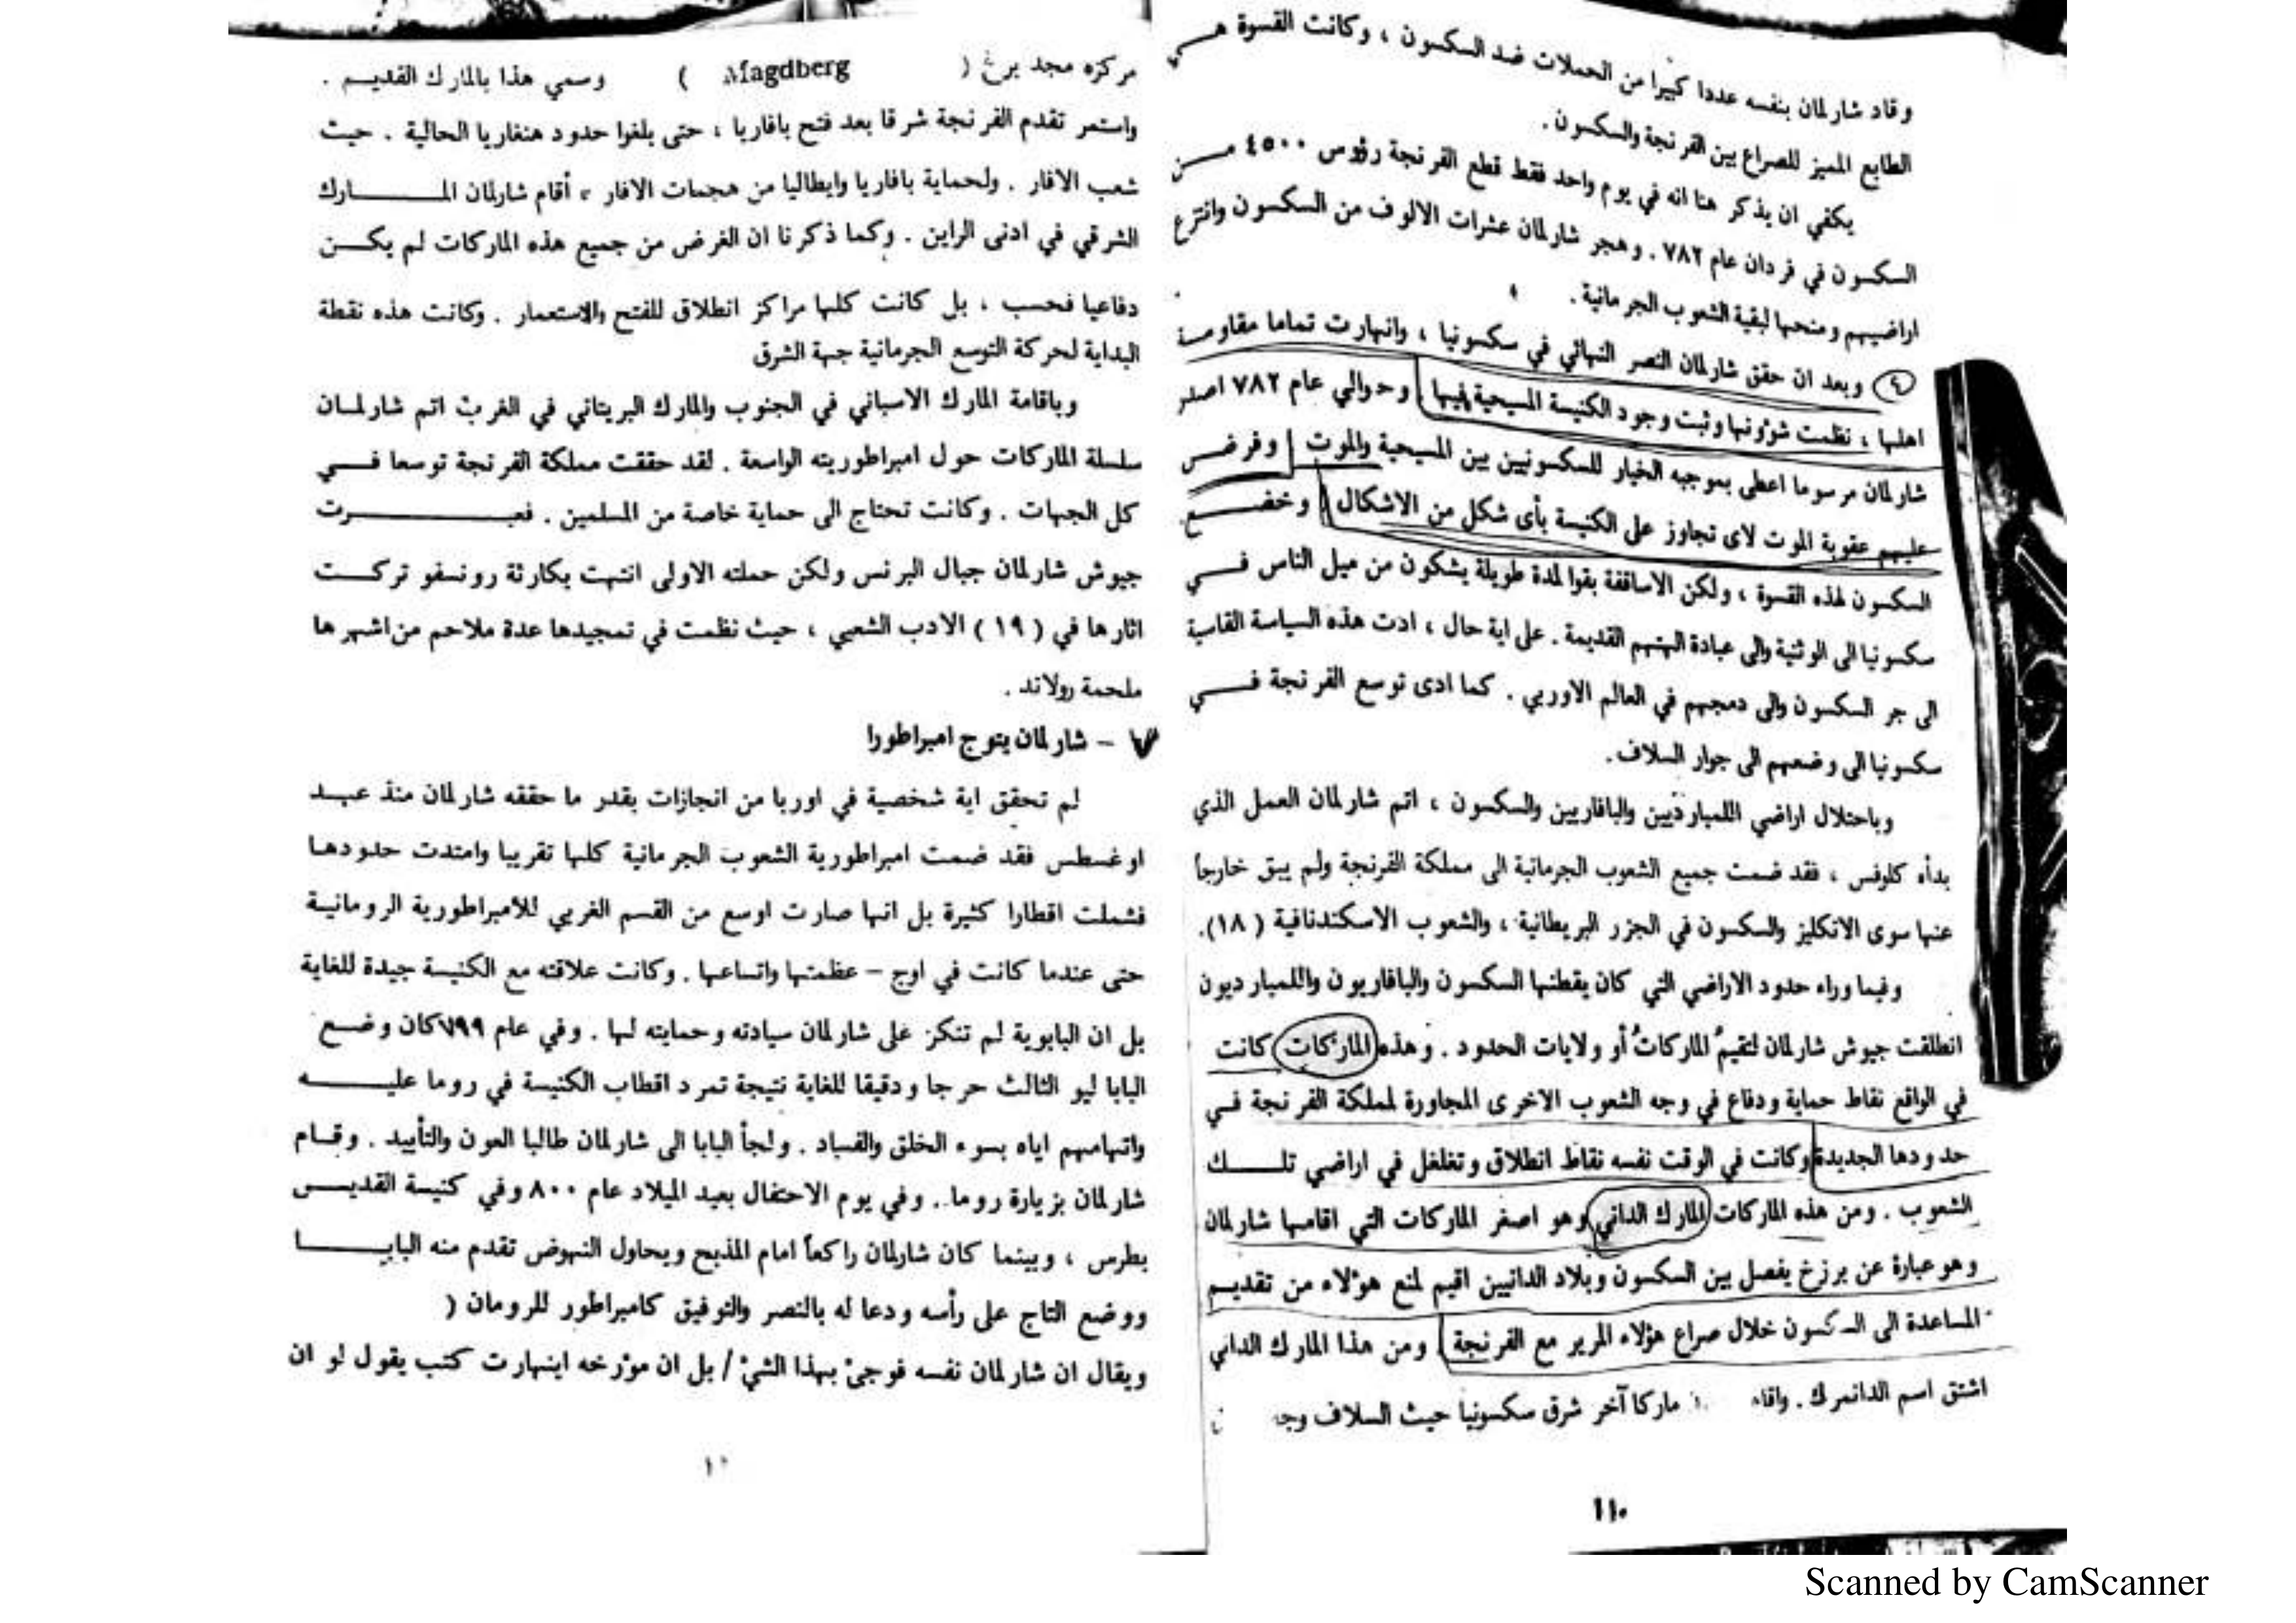 وقاد شارلمان بنفسه عددا كبيرا من الحملات ضد السكسون ، وكانت القسوة هي
الطابع المميز للصراع بين الفرنجة والسكسون .
يكفي ان يذكر هنا انه في يوم واحد فقط قطع الفرنجة رؤوس ٤٥٠٠ من
السكسون في فردان عام ٧٨٢ . وهجر شارلمان عشرات الالوف من السكسون وانتزع
اراضيهم ومنحها لبقية الشعوب الجرمانية .
٤ وبعد ان حقق شارلمان النصر النهائي في سكسونيا ، وانهارت تماما مقاومة
اهلها ، نظمت شؤونها وثبت وجود الكنيسة المسيحية فيها . وحوالي عام ٧٨٢ اصدر
شارلمان مرسوما اعطى بموجبه الخيار للسكسونيين بين المسيحية والموت وفرض
عليهم عقوبة الموت لاى تجاوز على الكنيسة بأى شكل من الاشكال وخضع
السكسون لهذه القسوة ، ولكن الاساقفة بقوا لمدة طويلة يشكون من ميل الناس في
سكسونيا الى الوثنية والى عبادة الهتهم القديمة . على اية حال ، ادت هذه السياسة القاسية
الى جر السكسون والى دمجهم في العالم الاوربي . كما ادى توسع الفرنجة في
سكسونيا الى وضعهم الى جوار السلاف .
وباحتلال اراضي اللمبارديين والبافاريين والسكسون ، اتم شارلمان العمل الذي
بدأه كلوفس ، فقد ضمت جميع الشعوب الجرمانية الى مملكة الفرنجة ولم يبق خارجاً
عنها سوى الانكليز والسكسون في الجزر البريطانية ، والشعوب الاسكندنافية ( ١٨ ) .
وفيما وراء حدود الاراضي التي كان يقطنها السكسون والبافاريون واللمبارديون
انطلقت جيوش شارلمان لتقيم الماركات أو ولايات الحدود . وهذه الماركات كانت
في الواقع نقاط حماية ودفاع في وجه الشعوب الاخرى المجاورة لمملكة الفرنجة في
حدودها الجديدة وكانت في الوقت نفسه نقاط انطلاق وتغلغل في اراضي تلك
الشعوب . ومن هذه الماركات المارك الداني وهو اصغر الماركات التي اقامها شارلمان
وهو عبارة عن برزخ يفصل بين السكسون وبلاد الدانيين اقيم لمنع هؤلاء من تقديم
المساعدة الى السكسون خلال صراع هؤلاء المرير مع الفرنجة . ومن هذا المارك الداني
اشتق اسم الدانمرك . ماركا آخر شرق سكسونيا حيث السلاف
١١٠
مركزه مجد برغ ( Magdberg ) وسمي هذا بالمارك القديم .
واستمر تقدم الفرنجة شرقا بعد فتح بافاريا ، حتى بلغوا حدود هنغاريا الحالية . حيث
شعب الافار . ولحماية بافاريا وايطاليا من هجمات الافار ، أقام شارلمان المارك
الشرقي في ادنى الراين . وكما ذكرنا ان الغرض من جميع هذه الماركات لم يكن
دفاعيا فحسب ، بل كانت كلها مراكز انطلاق للفتح والاستعمار . وكانت هذه نقطة
البداية لحركة التوسع الجرمانية جهة الشرق
وباقامة المارك الاسباني في الجنوب والمارك البريتاني في الغرب اتم شارلمان
سلسلة الماركات حول امبراطوريته الواسعة . لقد حققت مملكة الفرنجة توسعا في
كل الجهات . وكانت تحتاج الى حماية خاصة من المسلمين . فعبرت
جيوش شارلمان جبال البرنس ولكن حملته الاولى انتهت بكارثة رونسفو تركت
اثارها في ( ١٩ ) الادب الشعبي ، حيث نظمت في تمجيدها عدة ملاحم من اشهرها
ملحمة رولاند .
٧ – شارلمان يتوج امبراطورا
لم تحقق اية شخصية في اوربا من انجازات بقدر ما حققه شارلمان منذ عهد
اوغسطس فقد ضمت امبراطورية الشعوب الجرمانية كلها تقريبا وامتدت حدودها
فشملت اقطارا كثيرة بل انها صارت اوسع من القسم الغربي للامبراطورية الرومانية
حتى عندما كانت في اوج – عظمتها واتساعها . وكانت علاقته مع الكنيسة جيدة للغاية
بل ان البابوية لم تنكر على شارلمان سيادته وحمايته لها . وفي عام ٧٩٩ كان وضع
البابا ليو الثالث حرجا ودقيقا للغاية نتيجة تمرد اقطاب الكنيسة في روما عليه
واتهامهم اياه بسوء الخلق والفساد . ولجأ البابا الى شارلمان طالبا العون والتأييد . وقام
شارلمان بزيارة روما . وفي يوم الاحتفال بعيد الميلاد عام ٨٠٠ وفي كنيسة القديس
بطرس ، وبينما كان شارلمان راكعاً امام المذبح ويحاول النهوض تقدم منه البابا
ووضع التاج على رأسه ودعا له بالنصر والتوفيق كامبراطور للرومان (
ويقال ان شارلمان نفسه فوجئ بهذا الشئ / بل ان مؤرخه اينهارت كتب يقول لو ان
Scanned by CamScanner